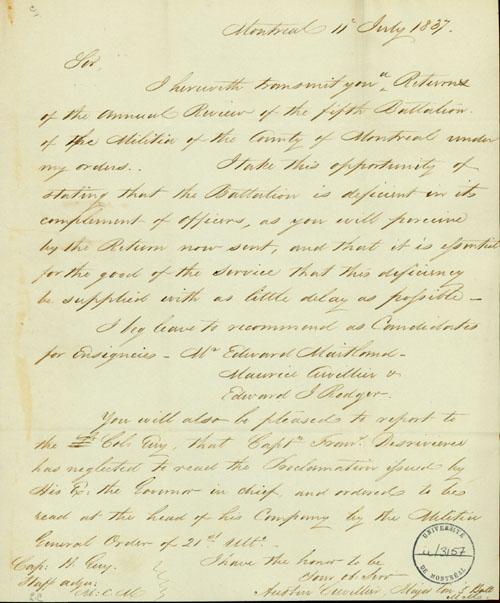 Montreal 11th July 1837.
Sir,
I herewith transmit you a Return
of the Annual Review of the fifth Battalion
of the Militia of the County of Montreal under
my orders. I take this opportunity of
stating that the Battalion is deficient in its
complement of officers, as you will perceive
by the Return now sent, and that it is essential
for the good of the Service that this deficiency
be supplied with as little delay as possible –
I beg leave to recommend as Candidates
for Ensigncies – Mr Edward Maitland –
Maurice Cuvillier &
Edward J Rodger.
You will also be pleased to report to
the Col: Guy, that Captn Franc. Desrivieres
has neglected to read the Proclamation issued by
His E: the Governor in chief and ordered to be
read at the head of his Company by the Militia
General Order of 21st Ult.
I have the honor to be
Your ob. Serv
Cap: H. Guy.
Staff adju:
Austin Cuvillier, Major Com 5 Batt
M. M.
UNIVERSITÉ DE MONTRÉAL
U/3157